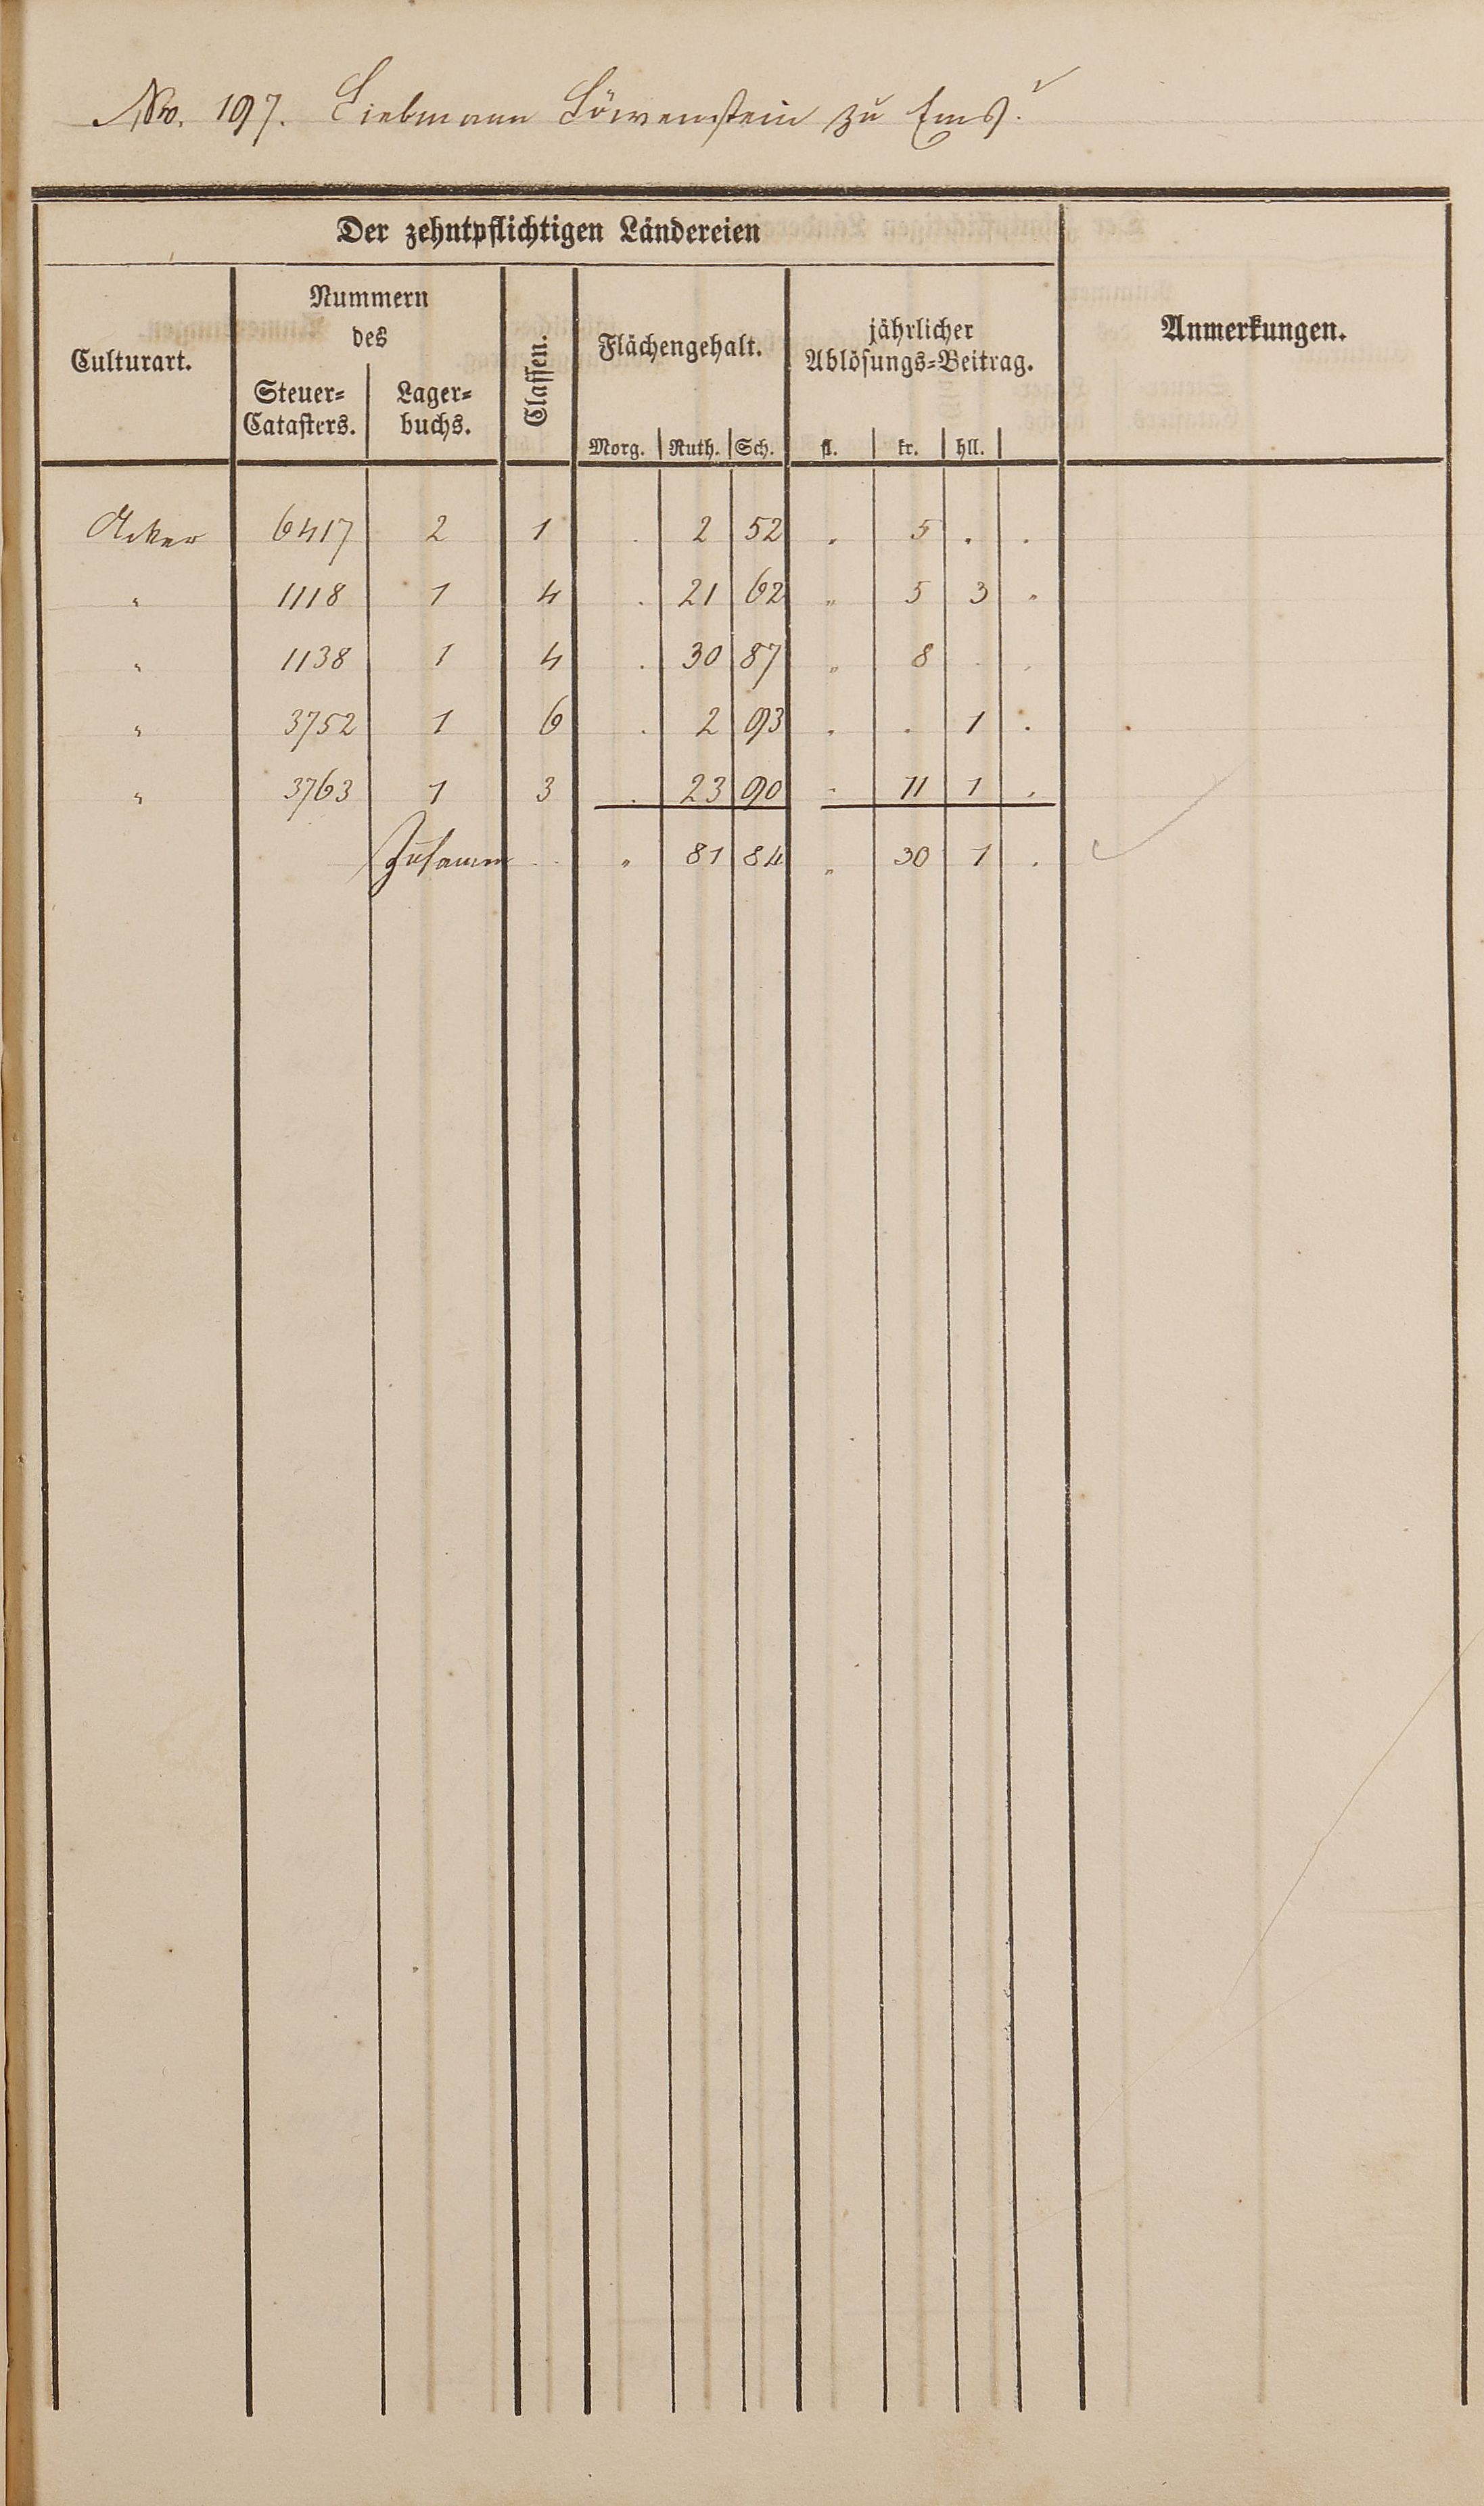 No. 197. Liebmann Löwenstein zu Ems.
Der zehntpflichtigen Ländereien
Culturart. Nummern des Steuer-Catasters. Lager-buchs. Classen. Flächengehalt. Morg. Ruth. Sch. jährlicher Ablösungs-Beitrag. fl. kr. hll. Anmerkungen.
Acker 6417 2 1 . 2 52 . 5 . .
" 1118 1 4 . 21 62 " 5 3 "
" 1138 1 4 . 30 87 " 8 . .
" 3752 1 6 . 2 93 . . 1 .
" 3763 1 3 . 23 90 . 11 1 .
Zusamm .. " 81 84 " 30 1 .